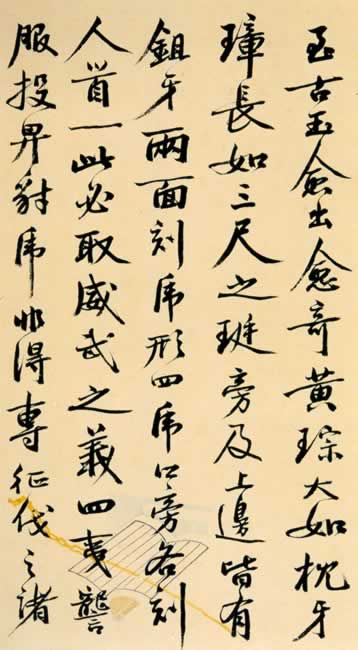 至古玉愈出愈奇黃琮大如枕牙
璋長如三尺之珽旁及上邊皆有
鉏牙兩面刻虎形四虎口旁各刻
人首一此必取威武之義四夷讋
服投畀豺虎非得專征伐之諸